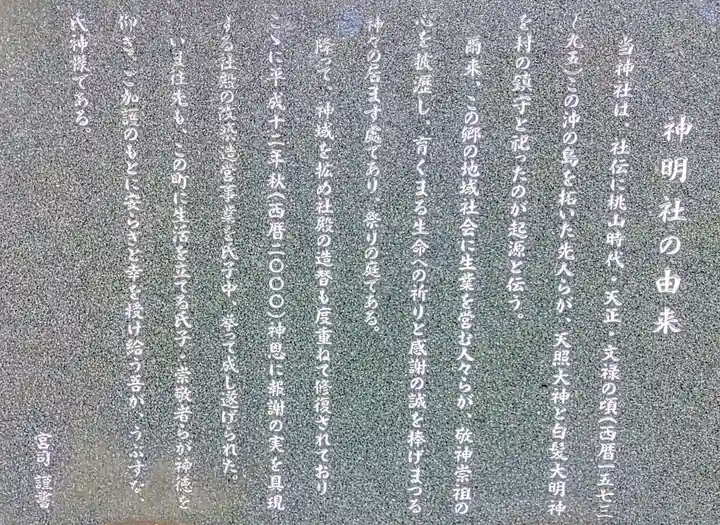 神明社の由来
当神社は、社伝に桃山時代・天正・文禄の頃(西暦一五七三
～九五)この沖の島を拓いた先人らが、天照大神と白髪大明神
を村の鎮守と祀ったのが起源と伝う。
爾来、この郷の地域社会に生業を営む人々らが、敬神崇祖の
心を披歴し、育くまる生命への祈りと感謝の誠を捧げまつる
神々の居ます處であり、祭りの庭である。
降って、神域を拡め社殿の造替も度重ねて修復されており
こゝに平成十二年秋(西暦二〇〇〇)神恩に報謝の実を具現
する社殿の改築造営事業を氏子中、挙って成し遂げられた。
いま往先も、この町に生活を立てる氏子・崇敬者らが神徳を
仰ぎ、ご加護のもとに安らぎと幸を授け給う吾が、うぶすな、
氏神様である。
宮司 謹書